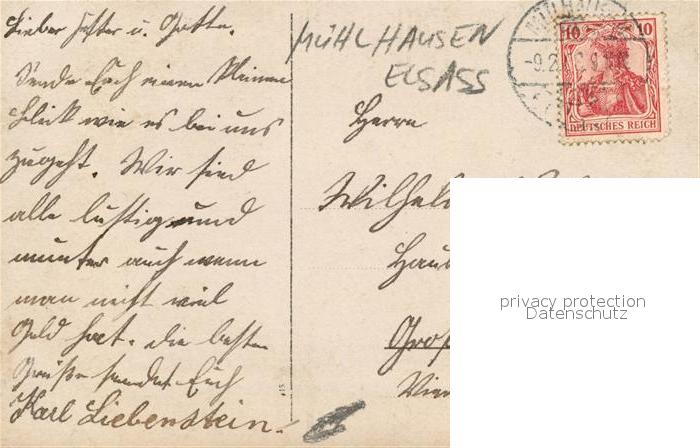 Lieber Vetter u. Gotte.
Sende Euch einen kleinen
Blick wie es bei uns
zugeht. Wir sind
alle lustig und
munter auch wenn
man nicht viel
Geld hat. die besten
Grüße sendet Euch
Karl Liebenstein.
MÜHLHAUSEN
ELSASS
10 10
DEUTSCHES REICH
-9.2
Herrn
privacy protection
Datenschutz